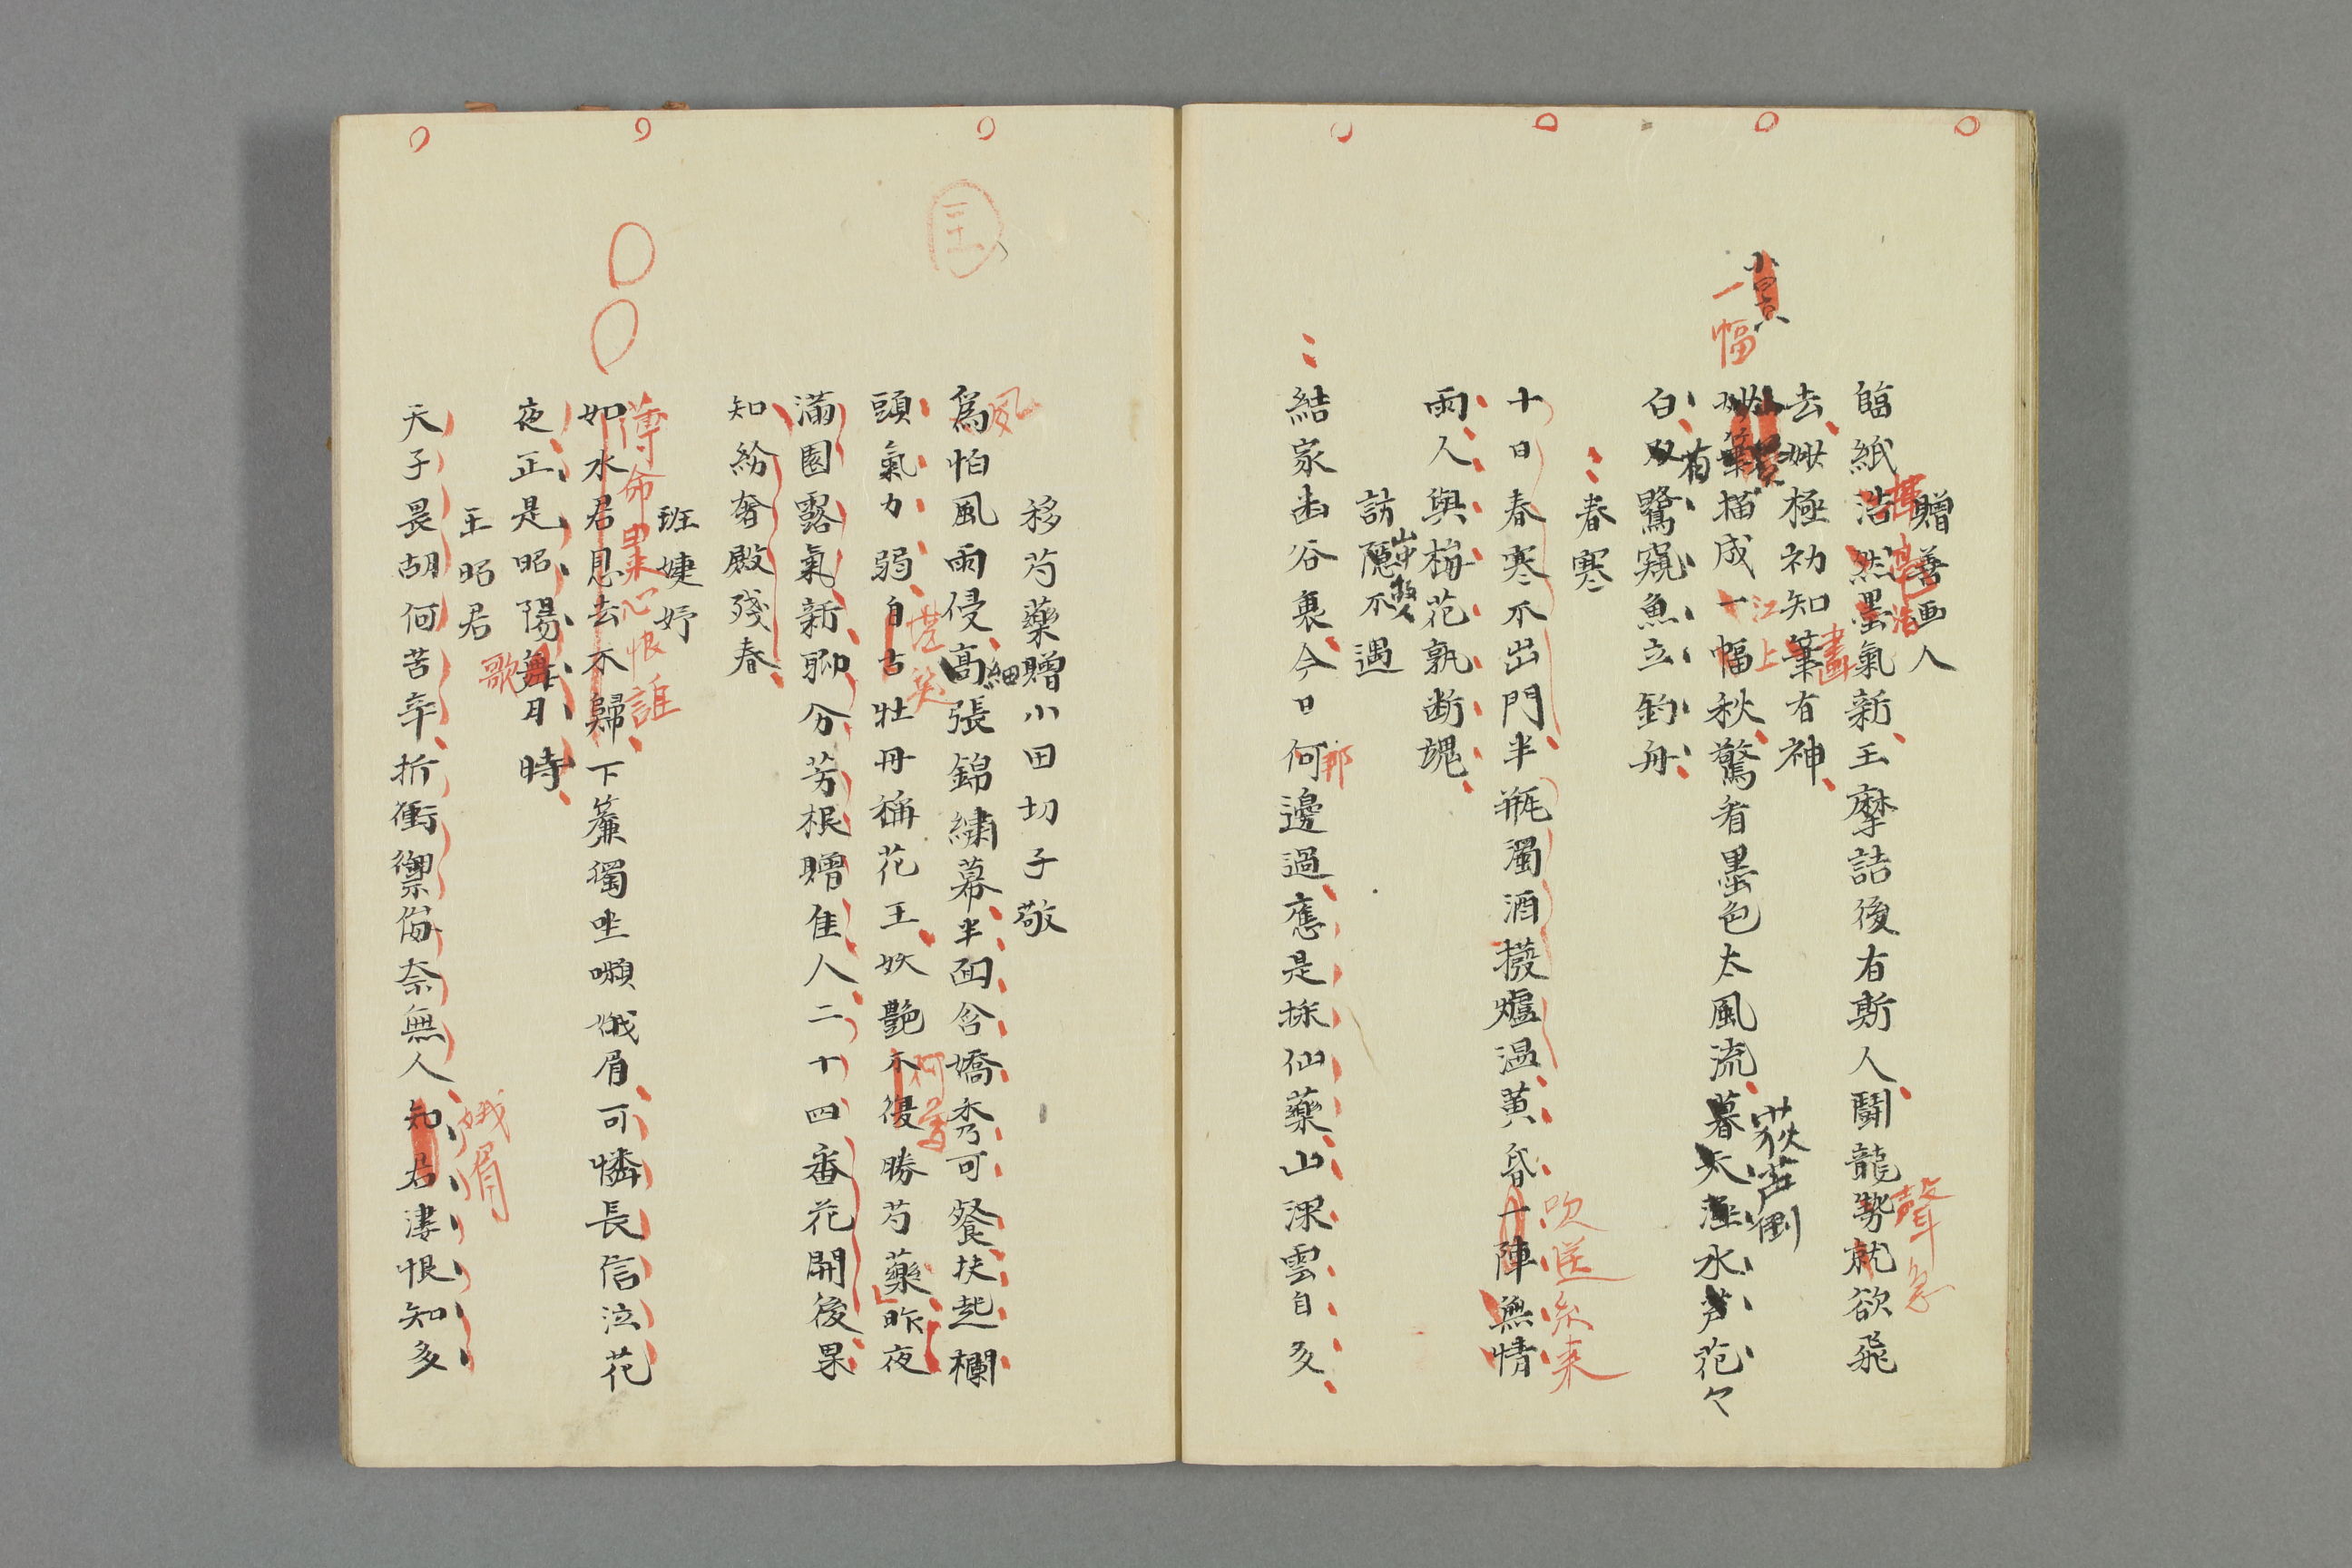 贈善画人
臨紙浩然墨氣新王摩詰後有斯人鬪龍勢就欲飛
聲急
去妙極初知筆有神
畫
妙筆描成一幅秋驚看墨色太風流暮天水芦花々
一幅
江上
荻芦倒
白双鷺窺魚立釣舟
有
春寒
十日春寒不出門半瓶濁酒撥爐温黄昏一陣無情
吹送糸来
雨人與梅花孰断魂
訪隠不遇
山中
結家幽谷裏今日何邊過應是採仙藥山深雲自多
那
移芍藥贈小田切子敬
為怕風雨侵高張錦繍幕半面含嬌秀可餐扶起欄
風
細
頭氣力弱自古牡丹稱花王妖艶不復勝芍藥昨夜
何曽
滿園露氣新聊分芳根贈佳人二十四番花開後果
知紛奢殿殘春
班婕妤
如水君恩去不歸下簾獨坐嚬娥眉可憐長信泣花
薄命累心恨誰
夜正是昭陽舞月時
歌
王昭君
天子畏胡何苦辛折衝禦侮奈無人知君凄恨知多
娥眉